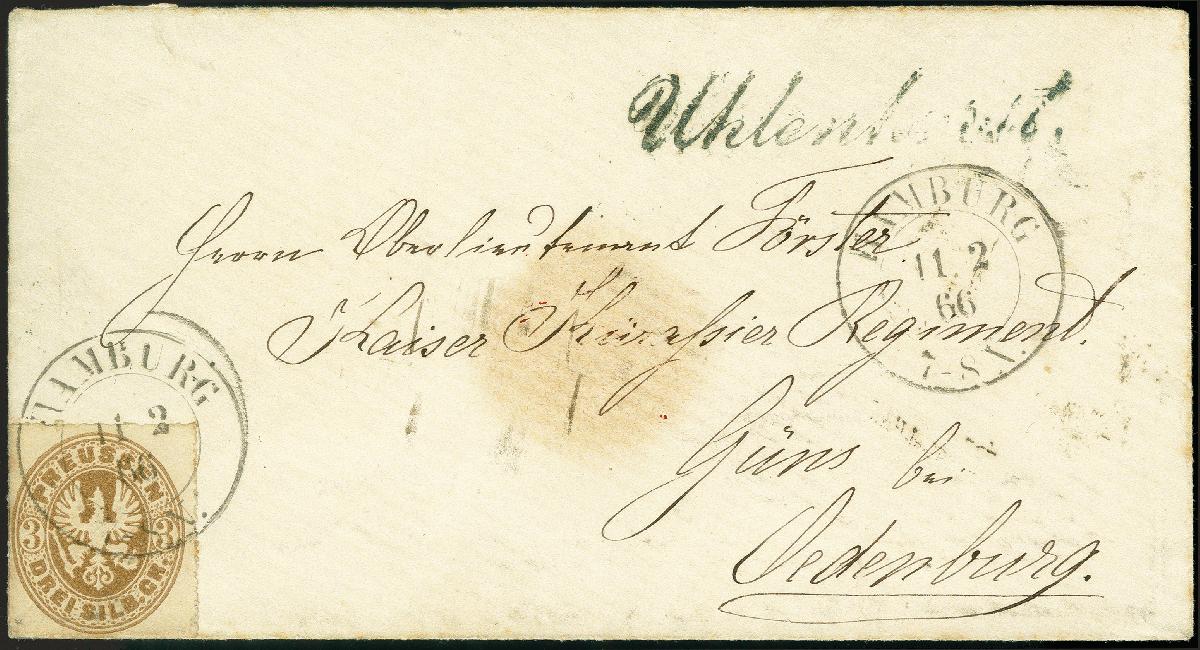 Uhlenhorst.
HAMBURG
11. 2
66
7-8 N.
Herrn Oberlieutenant Förster.
Kaiser Kürassier Regiment.
Güns bei
Oedenburg.
HAMBURG
11 2
66
N.
PREUSSEN
3 3
DREI SILB. GR.